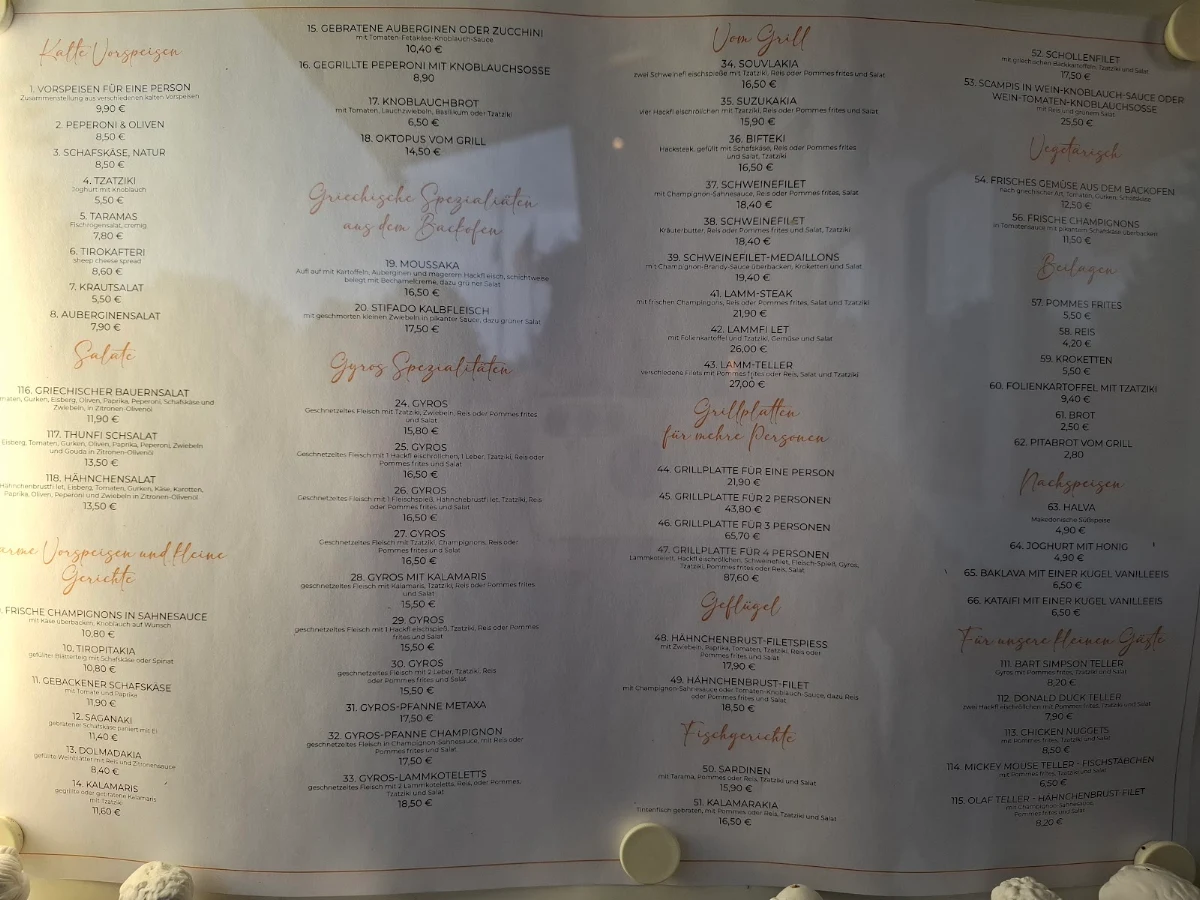 Kalte Vorspeisen
1. VORSPEISEN FÜR EINE PERSON
Zusammenstellung aus verschiedenen kalten Vorspeisen
9,90 €
2. PEPERONI & OLIVEN
8,50 €
3. SCHAFSKÄSE, NATUR
8,50 €
4. TZATZIKI
Joghurt mit Knoblauch
5,50 €
5. TARAMAS
Fischrogensalat, cremig
7,80 €
6. TIROKAFTERI
sheep cheese spread
8,60 €
7. KRAUTSALAT
5,50 €
8. AUBERGINENSALAT
7,90 €
Salate
116. GRIECHISCHER BAUERNSALAT
maten, Gurken, Eisberg, Oliven, Paprika, Peperoni, Schafskäse und
Zwiebeln, in Zitronen-Olivenöl
11,90 €
117. THUNFI SCHSALAT
Eisberg, Tomaten, Gurken, Oliven, Paprika, Peperoni, Zwiebeln
und Gouda in Zitronen-Olivenöl
13,50 €
118. HÄHNCHENSALAT
Hähnchenbrustfilet, Eisberg, Tomaten, Gurken, Käse, Karotten,
Paprika, Oliven, Peperoni und Zwiebeln in Zitronen-Olivenöl
13,50 €
arme Vorspeisen und kleine
Gerichte
. FRISCHE CHAMPIGNONS IN SAHNESAUCE
mit Käse überbacken, Knoblauch auf Wunsch
10,80 €
10. TIROPITAKIA
gefüllter Blätterteig mit Schafskäse oder Spinat
10,80 €
11. GEBACKENER SCHAFSKÄSE
mit Tomate und Paprika
11,90 €
12. SAGANAKI
gebratener Schafskäse paniert mit Ei
11,40 €
13. DOLMADAKIA
gefüllte Weinblätter mit Reis und Zitronensauce
8,40 €
14. KALAMARIS
gegrillte oder gebratene Kalamaris
mit Tzatziki
11,60 €
15. GEBRATENE AUBERGINEN ODER ZUCCHINI
mit Tomaten-Fetakäse-Knoblauch-Sauce
10,40 €
16. GEGRILLTE PEPERONI MIT KNOBLAUCHSOSSE
8,90
17. KNOBLAUCHBROT
mit Tomaten, Lauchzwiebeln, Basilikum oder Tzatziki
6,50 €
18. OKTOPUS VOM GRILL
14,50 €
Griechische Spezialitäten
aus dem Backofen
19. MOUSSAKA
Aufl auf mit Kartoffeln, Auberginen und magerem Hackfl eisch, schichtweise
belegt mit Bechamelcreme, dazu grüner Salat
16,50 €
20. STIFADO KALBFLEISCH
mit geschmorten kleinen Zwiebeln in pikanter Sauce, dazu grüner Salat
17,50 €
Gyros Spezialitäten
24. GYROS
Geschnetzeltes Fleisch mit Tzatziki, Zwiebeln, Reis oder Pommes frites
und Salat
15,80 €
25. GYROS
Geschnetzeltes Fleisch mit 1 Hackfl eischröllchen, 1 Leber, Tzatziki, Reis oder
Pommes frites und Salat
16,50 €
26. GYROS
Geschnetzeltes Fleisch mit 1 Fleischspieß, Hähnchebrustfilet, Tzatziki, Reis
oder Pommes frites und Salat
16,50 €
27. GYROS
Geschnetzeltes Fleisch mit Tzatziki, Champignons, Reis oder
Pommes frites und Salat
16,50 €
28. GYROS MIT KALAMARIS
geschnetzeltes Fleisch mit Kalamaris, Tzatziki, Reis oder Pommes frites
und Salat
15,50 €
29. GYROS
geschnetzeltes Fleisch mit 1 Hackfl eischspieß, Tzatziki, Reis oder Pommes
frites und Salat
15,50 €
30. GYROS
geschnetzeltes Fleisch mit 2 Leber, Tzatziki, Reis
oder Pommes frites und Salat
15,50 €
31. GYROS-PFANNE METAXA
17,50 €
32. GYROS-PFANNE CHAMPIGNON
geschnetzeltes Fleisch in Champignon-Sahnesauce, mit Reis oder
Pommes frites und Salat
17,50 €
33. GYROS-LAMMKOTELETTS
geschnetzeltes Fleisch mit 2 Lammkoteletts, Reis, oder Pommes,
Tzatziki und Salat
18,50 €
Vom Grill
34. SOUVLAKIA
zwei Schweinefl eischspieße mit Tzatziki, Reis oder Pommes frites und Salat
16,50 €
35. SUZUKAKIA
vier Hackfl eischröllchen mit Tzatziki, Reis oder Pommes frites und Salat
15,90 €
36. BIFTEKI
Hacksteak, gefüllt mit Schafskäse, Reis oder Pommes frites
und Salat, Tzatziki
16,50 €
37. SCHWEINEFILET
mit Champignon-Sahnesauce, Reis oder Pommes frites, Salat
18,40 €
38. SCHWEINEFILET
Kräuterbutter, Reis oder Pommes frites und Salat, Tzatziki
18,40 €
39. SCHWEINEFILET-MEDAILLONS
mit Champignon-Brandy-Sauce überbacken, Kroketten und Salat
19,40 €
41. LAMM-STEAK
mit frischen Champingons, Reis oder Pommes frites, Salat und Tzatziki
21,90 €
42. LAMMFI LET
mit Folienkartoffel und Tzatziki, Gemüse und Salat
26,00 €
43. LAMM-TELLER
verschiedene Filets mit Pommes frites oder Reis, Salat und Tzatziki
27,00 €
Grillplatten
für mehre Personen
44. GRILLPLATTE FÜR EINE PERSON
21,90 €
45. GRILLPLATTE FÜR 2 PERSONEN
43,80 €
46. GRILLPLATTE FÜR 3 PERSONEN
65,70 €
47. GRILLPLATTE FÜR 4 PERSONEN
Lammkotelett, Hackfl eischröllchen, Schweinefilet, Fleisch-Spieß, Gyros,
Tzatziki, Pommes frites oder Reis, Salat
87,60 €
Geflügel
48. HÄHNCHENBRUST-FILETSPIESS
mit Zwiebeln, Paprika, Tomaten, Tzatziki, Reis oder
Pommes frites und Salat
17,90 €
49. HÄHNCHENBRUST-FILET
mit Champignon-Sahnesauce oder Tomaten-Knoblauch-Sauce, dazu Reis
oder Pommes frites und Salat
18,50 €
Fischgerichte
50. SARDINEN
mit Tarama, Pommes oder Reis, Tzatziki und Salat
15,90 €
51. KALAMARAKIA
Tintenfisch gebraten, mit Pommes oder Reis, Tzatziki und Salat
16,50 €
52. SCHOLLENFILET
mit griechischen Backkartoffeln, Tzatziki und Salat
17,50 €
53. SCAMPIS IN WEIN-KNOBLAUCH-SAUCE ODER
WEIN-TOMATEN-KNOBLAUCHSOSSE
mit Reis und grünem Salat
25,50 €
Vegetarisch
54. FRISCHES GEMÜSE AUS DEM BACKOFEN
nach griechischer Art, Tomaten, Gurken, Schafskäse
12,50 €
56. FRISCHE CHAMPIGNONS
in Tomatensauce mit pikantem Schafskäse überbacken
11,50 €
Beilagen
57. POMMES FRITES
5,50 €
58. REIS
4,20 €
59. KROKETTEN
5,50 €
60. FOLIENKARTOFFEL MIT TZATZIKI
9,40 €
61. BROT
2,50 €
62. PITABROT VOM GRILL
2,80
Nachspeisen
63. HALVA
Makedonische Süßspeise
4,90 €
64. JOGHURT MIT HONIG
4,90 €
65. BAKLAVA MIT EINER KUGEL VANILLEEIS
6,50 €
66. KATAIFI MIT EINER KUGEL VANILLEEIS
6,50 €
Für unsere kleinen Gäste
111. BART SIMPSON TELLER
Gyros mit Pommes frites, Tzatziki und Salat
8,20 €
112. DONALD DUCK TELLER
zwei Hackfl eischröllchen mit Pommes frites, Tzatziki und Salat
7,90 €
113. CHICKEN NUGGETS
mit Pommes frites, Tzatziki und Salat
8,50 €
114. MICKEY MOUSE TELLER - FISCHSTÄBCHEN
mit Pommes frites, Tzatziki und Salat
6,50 €
115. OLAF TELLER - HÄHNCHENBRUST FILET
mit Champignon-Sahnesauce,
Pommes frites und Salat
8,20 €